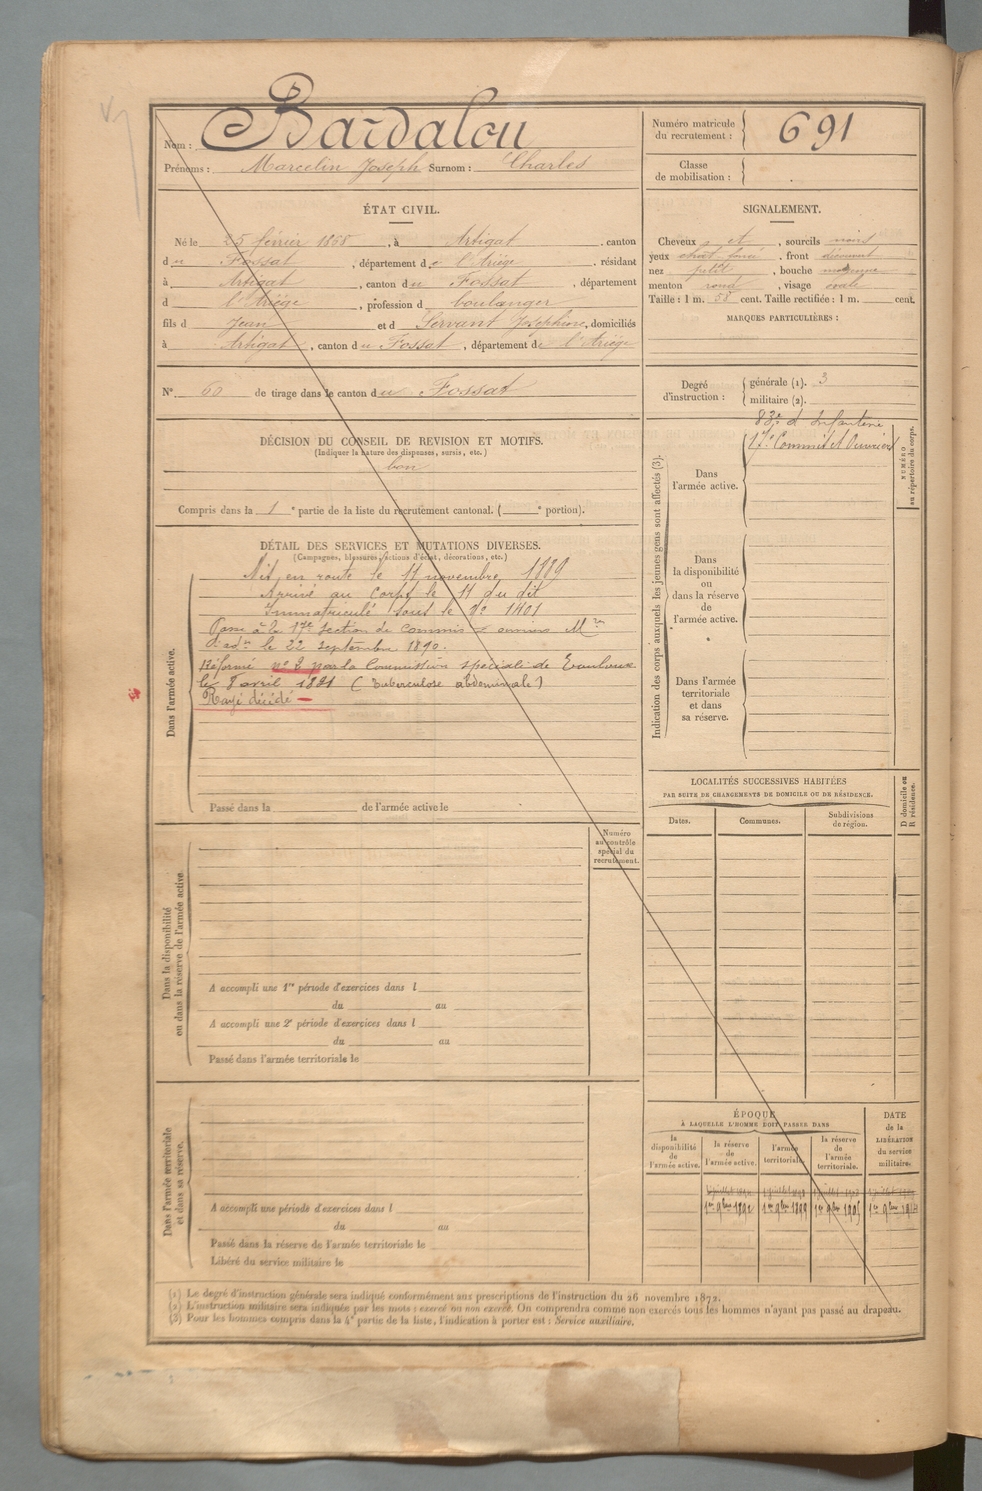 Nom : Bardalou
Prénoms : Marcelin Joseph Surnom : Charles
Numéro matricule du recrutement : 691
Classe de mobilisation :
ÉTAT CIVIL.
Né le 25 février 1868, à Artigat, canton
du Fossat, département de l'Ariège, résidant
à Artigat, canton du Fossat, département
d l'Ariège, profession d boulanger
fils d Jean et d Servant Joséphine, domiciliés
à Artigat, canton du Fossat, département de l'Ariége
SIGNALEMENT.
Cheveux et, sourcils noirs
yeux chat foncé, front découvert
nez petit, bouche moyenne
menton rond, visage ovale
Taille : 1 m. 58 cent. Taille rectifiée : 1 m. cent.
MARQUES PARTICULIÈRES :
N° 60 de tirage dans le canton du Fossat
Degré d'instruction : générale (1). 3
militaire (2).
DÉCISION DU CONSEIL DE REVISION ET MOTIFS.
(Indiquer la nature des dispenses, sursis, etc.)
bon
Compris dans la 1e partie de la liste du recrutement cantonal. ( e portion).
DÉTAIL DES SERVICES ET MUTATIONS DIVERSES.
(Campagnes, blessures, actions d'éclat, décorations, etc.)
Dans l'armée active.
Mis en route le 11 novembre 1889
Arrivé au Corps le 11 du dit
Immatriculé sous le N° 1401
Passé à la 17e Section de Commis
le 22 septembre 1890.
Réformé n° 2 par la Commission spéciale de Toulouse
le 8 avril 1891 (tuberculose abdominale)
Rayé décédé
Passé dans la de l'armée active le
Indication des corps auxquels les jeunes gens sont affectés (3).
83e d'Infanterie
17e Commis et Ouvriers
NUMÉRO au répertoire du corps.
Dans l'armée active.
Dans la disponibilité ou dans la réserve de l'armée active.
Dans l'armée territoriale et dans sa réserve.
LOCALITÉS SUCCESSIVES HABITÉES
PAR SUITE DE CHANGEMENTS DE DOMICILE OU DE RÉSIDENCE.
Dates. Communes. Subdivisions de région. D domicile ou R résidence.
Numéro au contrôle spécial du recrutement.
Dans la disponibilité ou dans la réserve de l'armée active
A accompli une 1re période d'exercices dans l
du au
A accompli une 2e période d'exercices dans l
du au
Passé dans l'armée territoriale le
Dans l'armée territoriale et dans sa réserve.
A accompli une période d'exercices dans l
du au
Passé dans la réserve de l'armée territoriale le
Libéré du service militaire le
ÉPOQUE
À LAQUELLE L'HOMME DOIT PASSER DANS
la disponibilité de l'armée active.
la réserve de l'armée active.
l'armée territoriale.
la réserve de l'armée territoriale.
DATE de la LIBÉRATION du service militaire.
1er 9bre 1892 1er 9bre 1899 1er 9bre 1905 1er 9bre 1914
(1) Le degré d'instruction générale sera indiqué conformément aux prescriptions de l'instruction du 26 novembre 1872.
(2) L'instruction militaire sera indiquée par les mots : exercé ou non exercé. On comprendra comme non exercés tous les hommes n'ayant pas passé au drapeau.
(3) Pour les hommes compris dans la 4e partie de la liste, l'indication à porter est : Service auxiliaire.